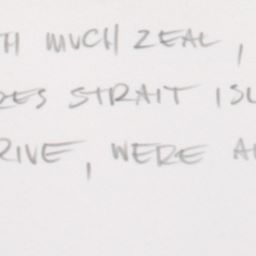 TH MUCH ZEAL,
RES STRAIT ISL
RIVE, WERE A